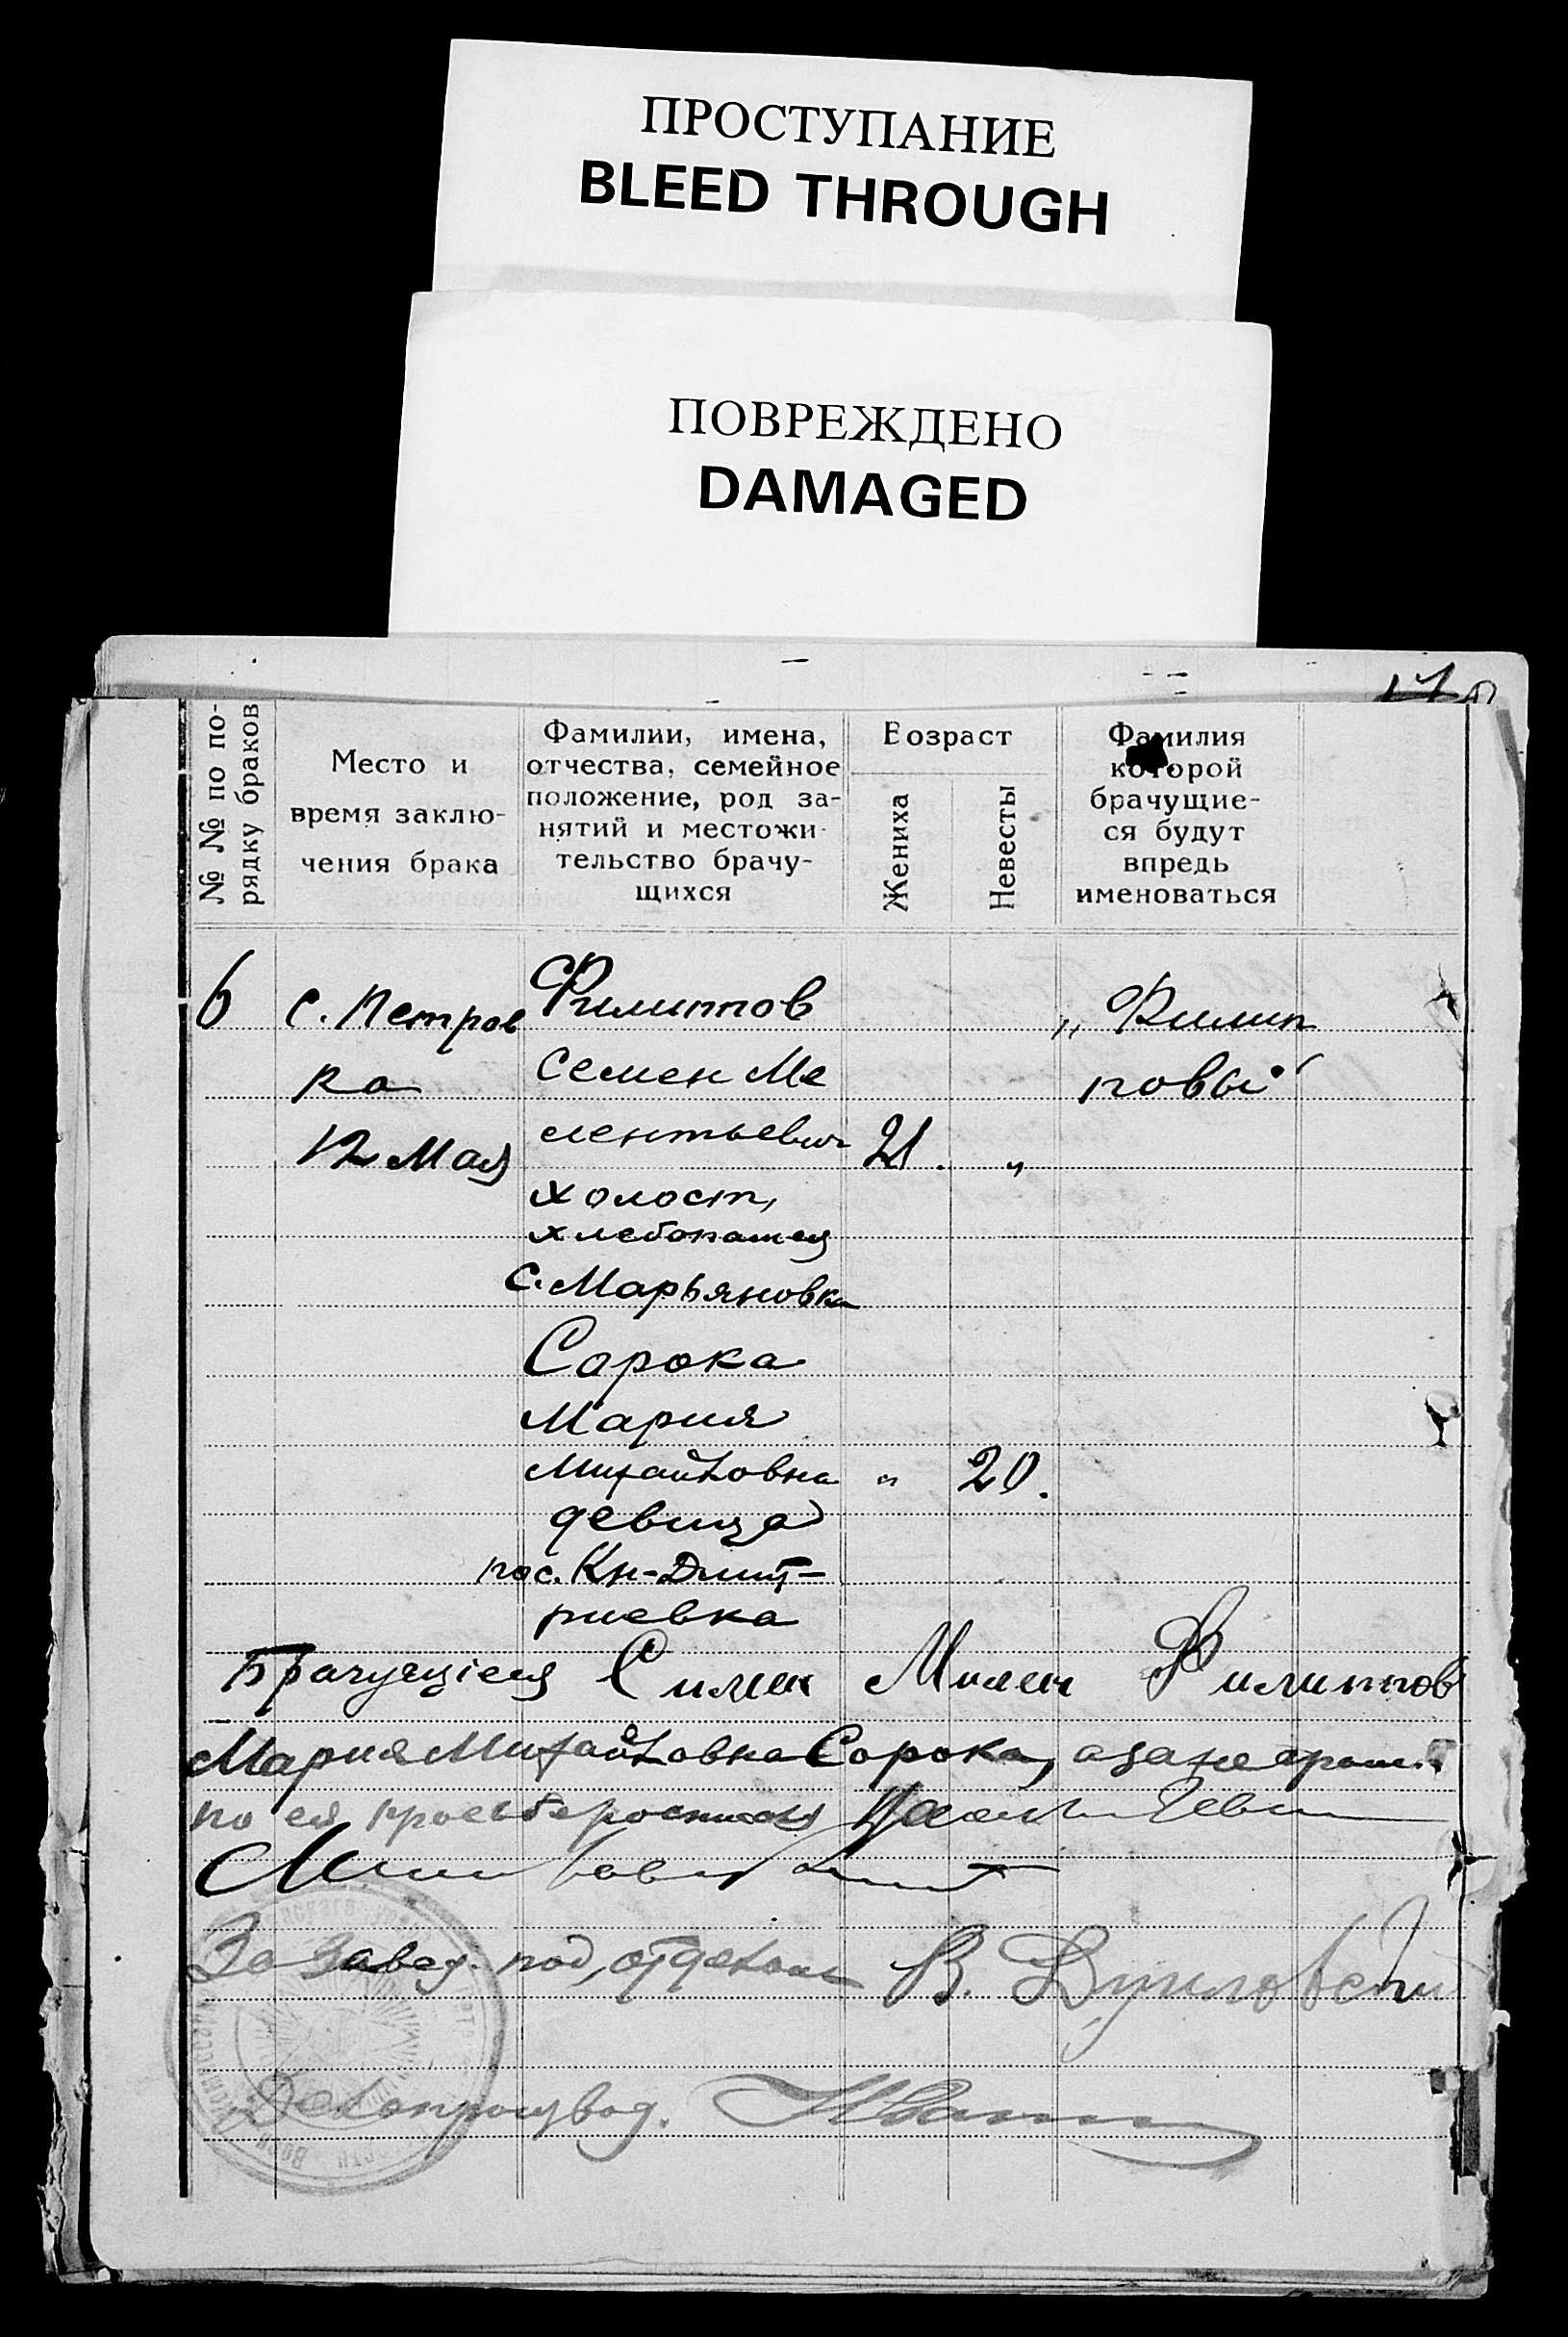 ПРОСТУПАНИЕ
BLEED THROUGH
ПОВРЕЖДЕНО
DAMAGED
№ № по по-
рядку браков
Место и
время заклю-
чения брака
Фамилии, имена,
отчества, семейное
положение, род за-
нятий и местожи-
тельство брачу-
щихся
Возраст
Жениха
Невесты
Фамилия
которой
брачущие-
ся будут
впредь
именоваться
6 с. Петров Филиппов „Филип
ка Семен Ме повы“
12 Мая лентьевич 21. „
холост,
хлебопашец
с. Марьяновка
Сорока
Мария
Михайловна „ 20.
девица
пос. Кн-Дмит-
риевка
Брачущiеся Симен Милен Филиппов
Мария Михайловна Сорока, а за неграм.
по ея просьбе
За Завед. под, отделом В.
Делопроизвод. Иванин